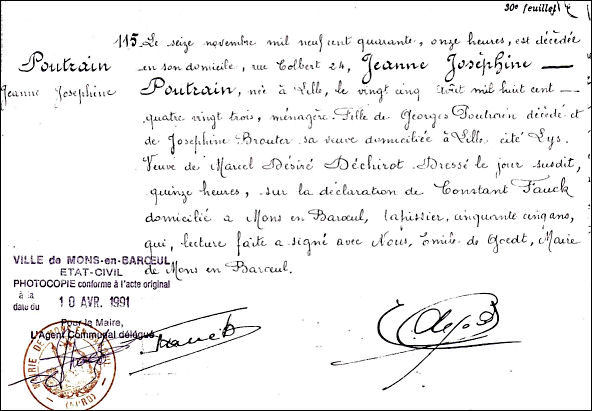 30e feuillet
115. Le seize novembre mil neuf cent quarante, onze heures, est décédée
Poutrain
en son domicile, rue Colbert 24, Jeanne Josèphine —
Jeanne Josephine
Poutrain, née à Lille, le vingt cinq Août mil huit cent —
quatre vingt trois, ménagère. Fille de Georges Poutrain décédé et
de Josephine Brouter sa veuve domiciliée à Lille cité Lys.
Veuve de Marcel Désiré Déchirot. Dressé le jour susdit,
quinze heures, sur la déclaration de Constant Fauck
domicilié a Mons en Barœul, tapissier, cinquante cinq ans,
qui, lecture faite a signé avec Nous, Emile de Goedt, Maire
de Mons en Barœul.
VILLE de MONS-en-BARŒUL
ETAT-CIVIL
PHOTOCOPIE conforme à l'acte original
à la
date du 10 AVR. 1991
Pour le Maire,
L'Agent Communal délégué
MAIRIE DE MONS-EN-BARŒUL
(NORD)